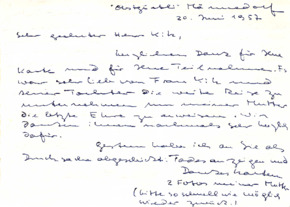 "Obstgärtli" Männedorf
20. Juni 1957
Sehr geehrter Herr Kih,
herzlichen Dank für Ihre
Karte und für Ihre Teilnahme. Es
war sehr lieb von Frau Kih und
Ihrer Tochter die weite Reise zu
unternehmen um meiner Mutter
die letzte Ehre zu erweisen. Wir
danken Ihnen nochmals sehr herzlich
dafür.
Gestern habe ich an Sie als
Drucksache abgeschickt: Todesanzeigen und
Dankeskarten
2 Fotos meiner Mutter
(bitte so schnell wie möglich
wieder zurück!)